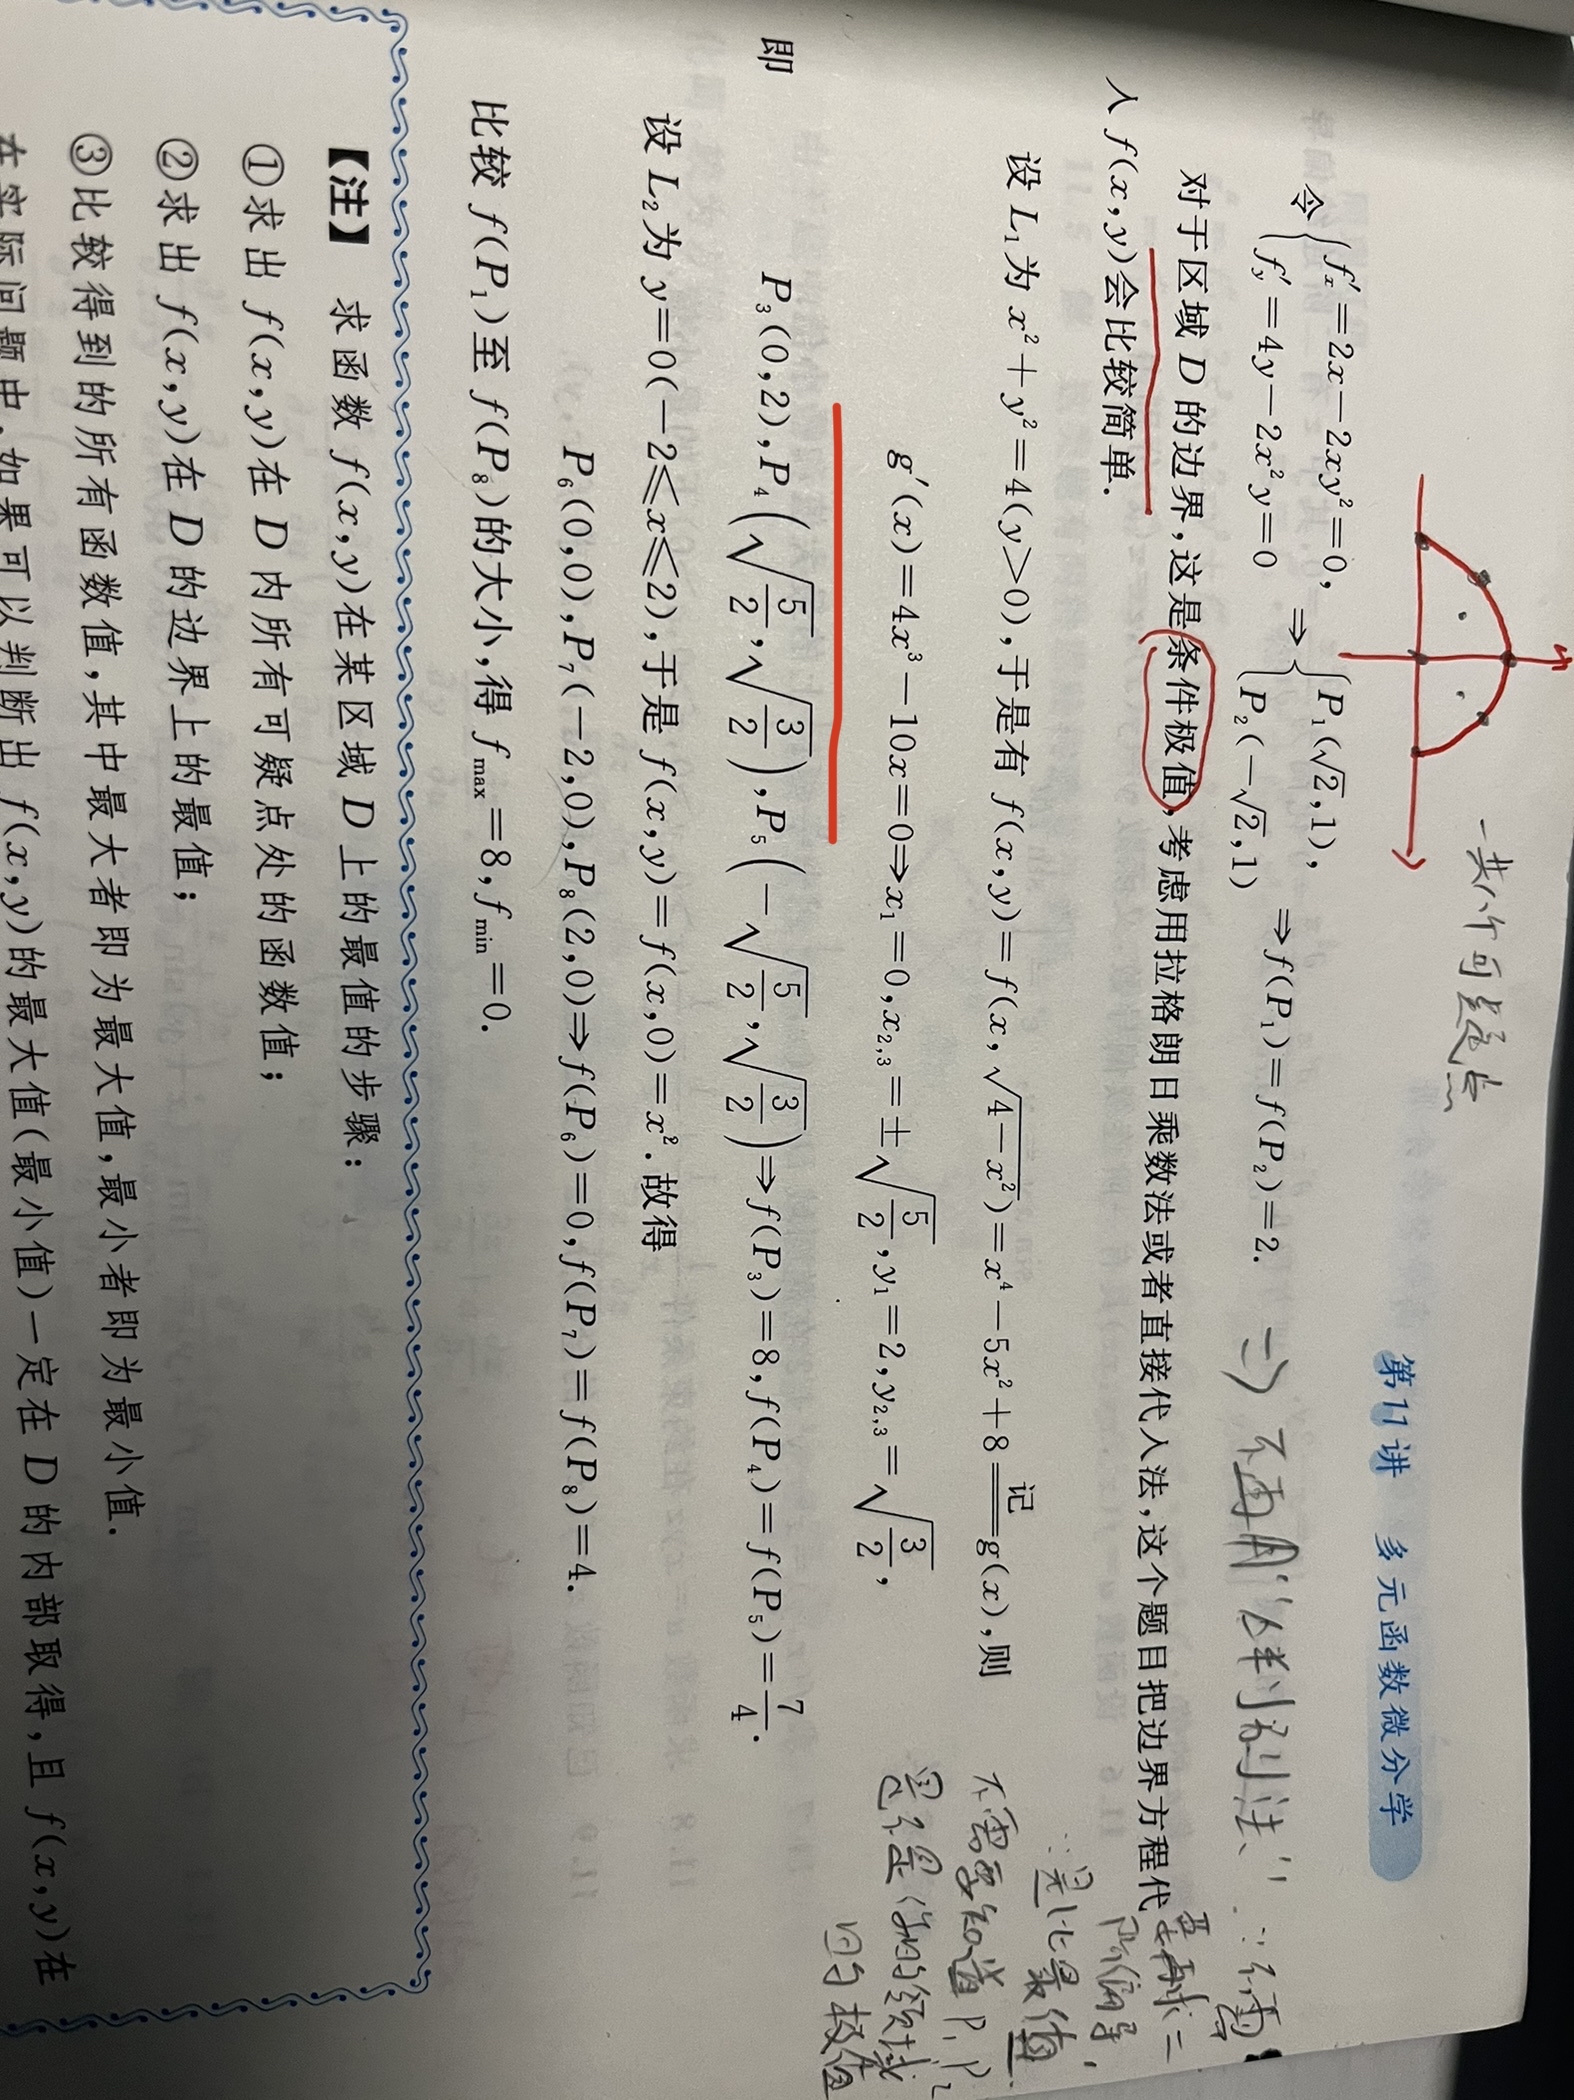 一共八个可疑点
第11讲 多元函数微分学
令{f′x=2x-2xy²=0, f′y=4y-2x²y=0 ⇒ {P₁(√2,1), P₂(-√2,1) ⇒f(P₁)=f(P₂)=2.
⇒不再用"△判别法" ∵不需
要再求二
阶偏导,
∵是比最值
不需要知道P₁P₂
是不是你的领域
内的极值
对于区域 D 的边界,这是条件极值,考虑用拉格朗日乘数法或者直接代入法,这个题目把边界方程代
入 f(x,y)会比较简单.
设 L₁为 x²+y²=4(y>0),于是有 f(x,y)=f(x,√(4-x²))=x⁴-5x²+8 记== g(x),则
g′(x)=4x³-10x=0⇒x₁=0,x₂,₃=±√(5/2),y₁=2,y₂,₃=√(3/2),
即
P₃(0,2),P₄(√(5/2),√(3/2)),P₅(-√(5/2),√(3/2))⇒f(P₃)=8,f(P₄)=f(P₅)=7/4.
设 L₂为 y=0(-2≤x≤2),于是 f(x,y)=f(x,0)=x².故得
P₆(0,0),P₇(-2,0),P₈(2,0)⇒f(P₆)=0,f(P₇)=f(P₈)=4.
比较 f(P₁)至 f(P₈)的大小,得 f max=8,f min=0.
【注】 求函数 f(x,y)在某区域 D 上的最值的步骤:
①求出 f(x,y)在 D 内所有可疑点处的函数值;
②求出 f(x,y)在 D 的边界上的最值;
③比较得到的所有函数值,其中最大者即为最大值,最小者即为最小值.
在实际问题中,如果可以判断出 f(x,y)的最大值(最小值)一定在 D 的内部取得,且 f(x,y)在